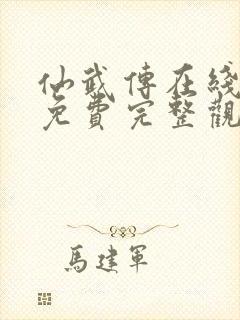 仙武傳在綫
免費完整觀
馬建軍